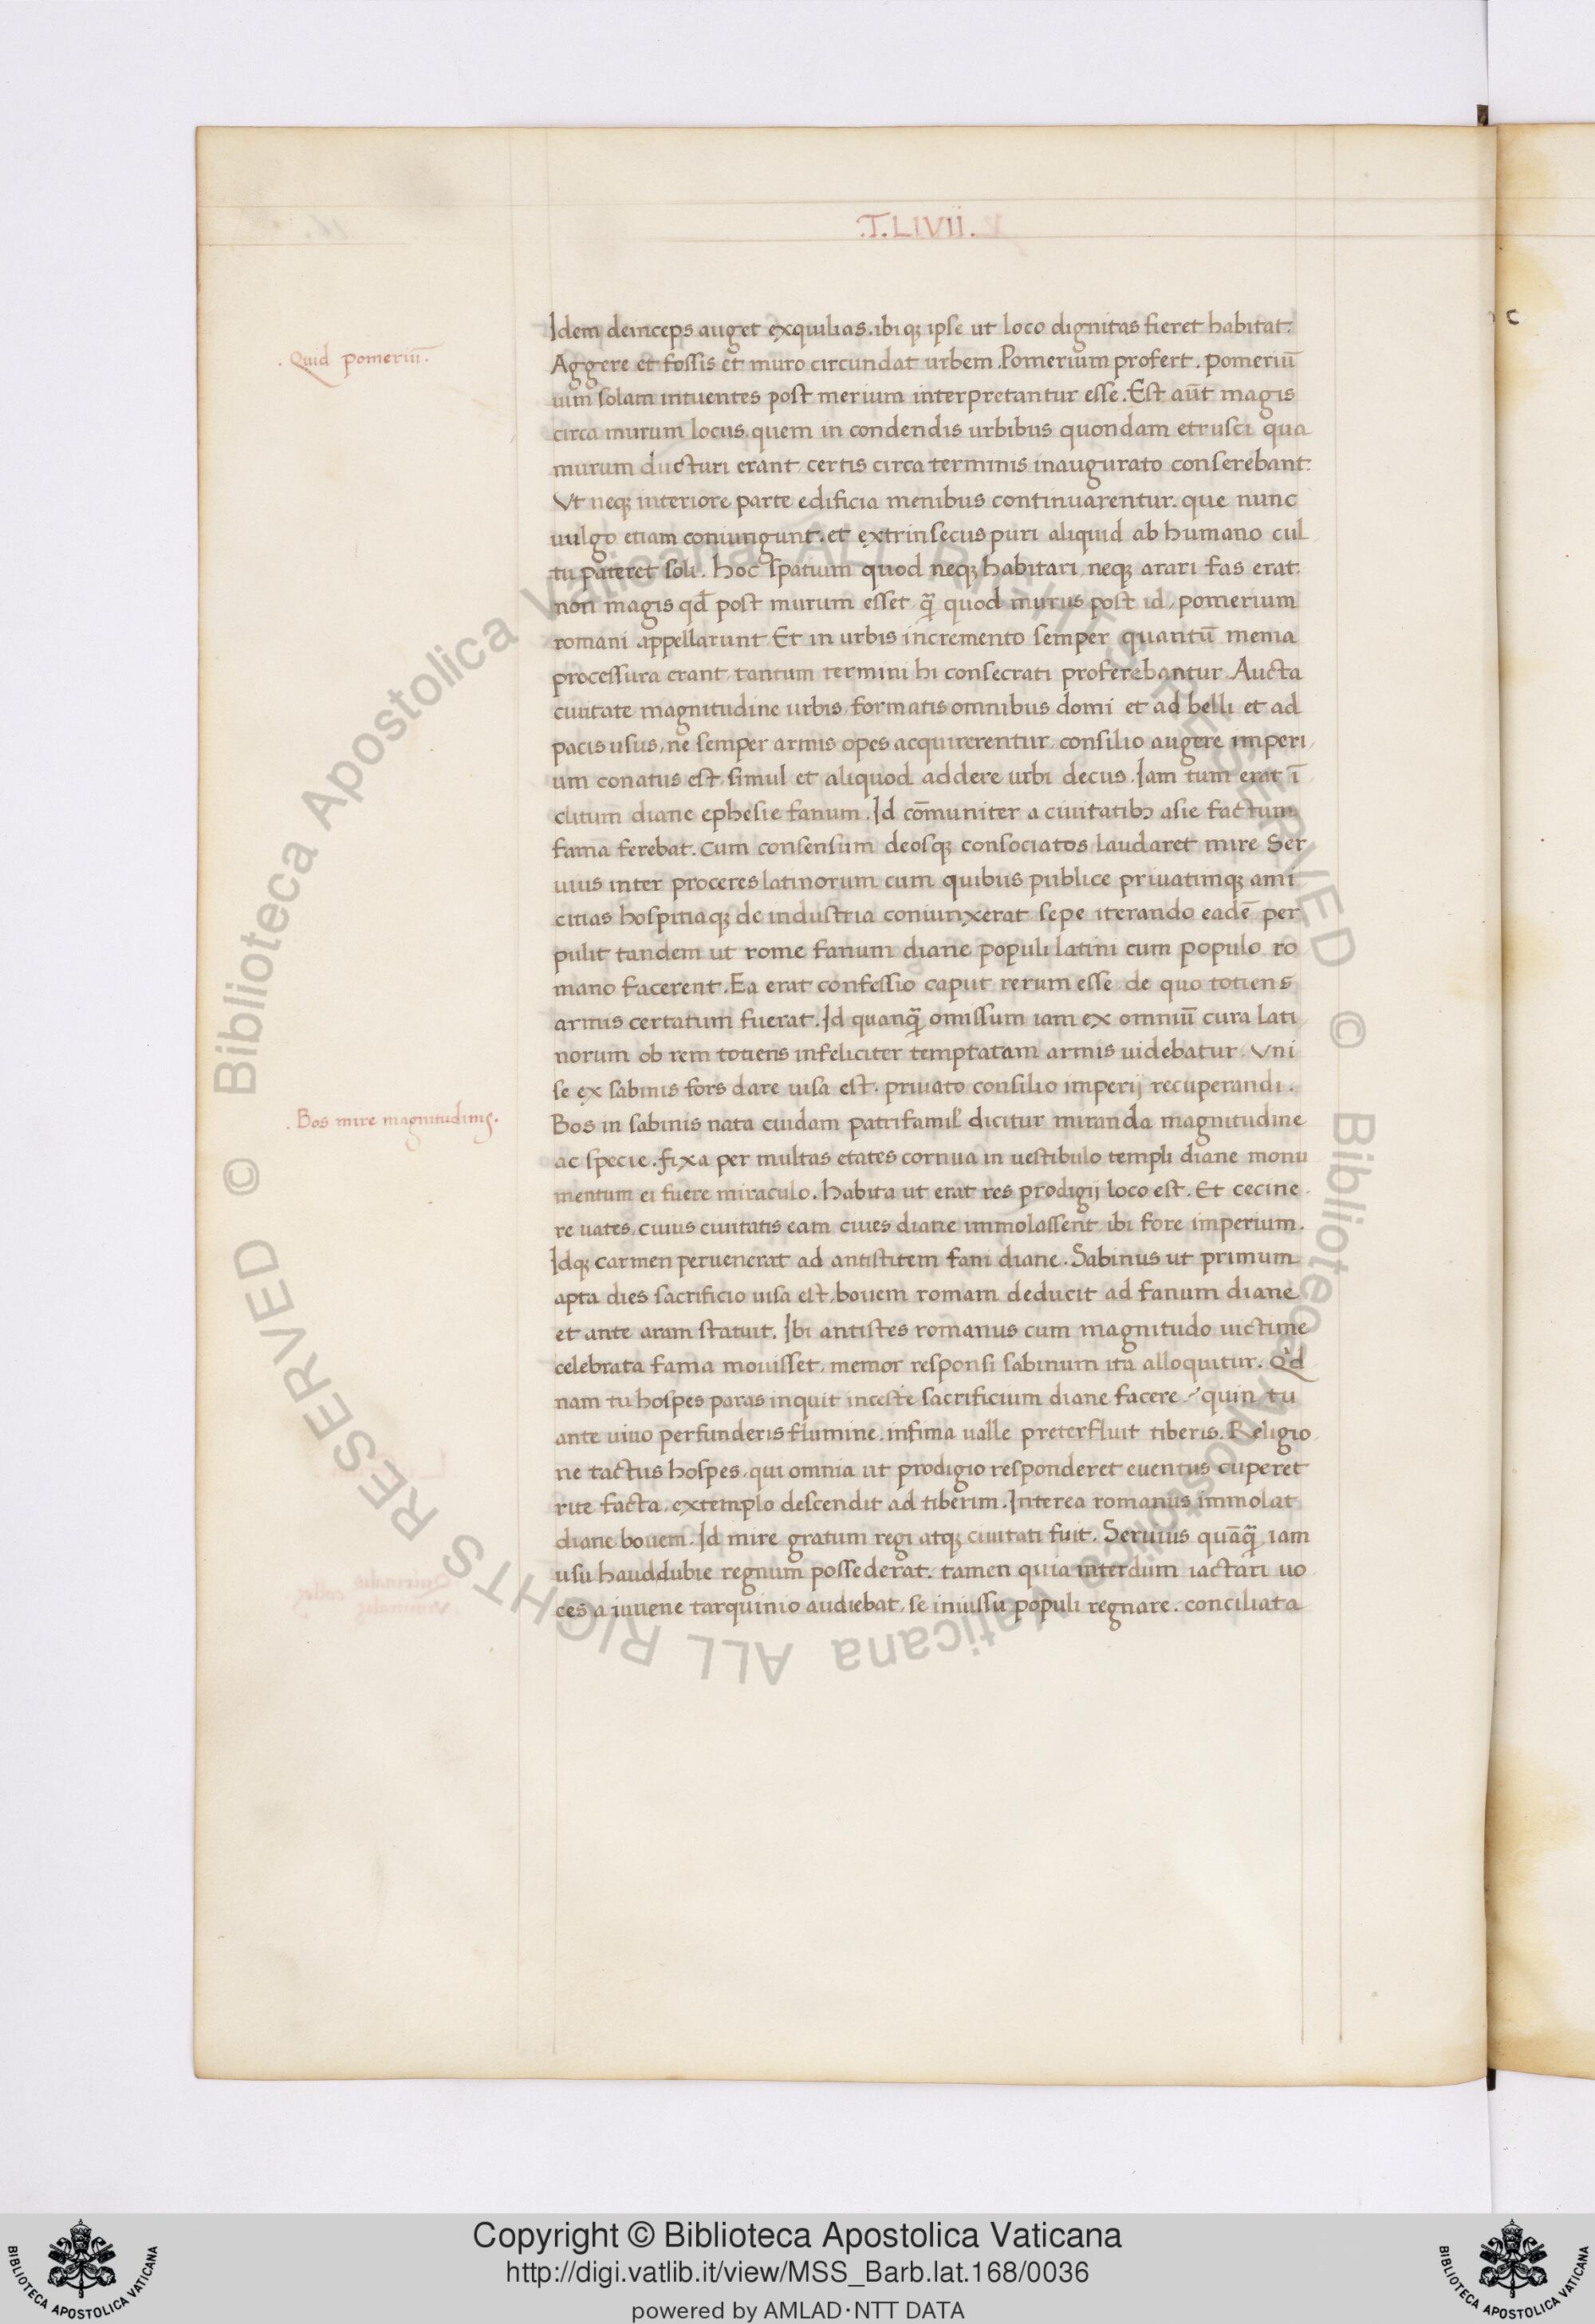 .T. LIVII.
Idem deinceps auget exquilias. ibiqꝫ ipse ut loco dignitas fieret habitat.
. Quid pomeriū.
Aggere et fossis et muro circundat urbem. Pomerium profert. pomeriū
uim solam intuentes post merium interpretantur esse. Est aūt magis
circa murum locus, quem in condendis urbibus quondam etrusci qua
murum ducturi erant, certis circa terminis inaugurato conserebant.
Vt neqꝫ interiore parte edificia menibus continuarentur. que nunc
uulgo etiam coniungunt. et extrinsecus puri aliquid ab humano cul
tu pateret soli. hoc spatium quod neqꝫ habitari, neqꝫ arari fas erat.
non magis qđ post murum esset, q̃ quod murus post id, pomerium
romani appellarunt. Et in urbis incremento semper quantū menia
processura erant, tantum termini hi consecrati proferebantur. Aucta
ciuitate magnitudine urbis, formatis omnibus domi et ad belli et ad
pacis usus, ne semper armis opes acquirerentur, consilio augere imperi
um conatus est, simul et aliquod addere urbi decus. Iam tum erat ī
clitum diane ephesie fanum. Id cōmuniter a ciuitatibꝫ asie factum
fama ferebat. cum consensum deosqꝫ consociatos laudaret mire Ser
uius inter proceres latinorum cum quibus publice priuatimqꝫ ami
citias hospitiaqꝫ de industria coniunxerat. sepe iterando eadē per
pulit tandem ut rome fanum diane populi latini cum populo ro
mano facerent. Ea erat confessio caput rerum esse, de quo totiens
armis certatum fuerat. Id quanq̃ omissum iam ex omniū cura lati
norum ob rem totiens infeliciter temptatam armis uidebatur. vni
se ex sabinis fors dare uisa est. priuato consilio imperij recuperandi.
. Bos mire magnitudinis.
Bos in sabinis nata cuidam patrifamil' dicitur miranda magnitudine
ac specie. fixa per multas etates cornua in uestibulo templi diane monu
mentum ei fuere miraculo. habita ut erat res prodigij loco est. Et cecine
re uates, cuius ciuitatis eam ciues diane immolassent ibi fore imperium.
Idqꝫ carmen peruenerat ad antistitem fani diane. Sabinus ut primum
apta dies sacrificio uisa est, bouem romam deducit ad fanum diane
et ante aram statuit. Ibi antistes romanus cum magnitudo uictime
celebrata fama mouisset, memor responsi sabinum ita alloquitur. Qd
nam tu hospes paras inquit inceste sacrificium diane facere? quin tu
ante uiuo perfunderis flumine. infima ualle preterfluit tiberis. Religio
ne tactus hospes, qui omnia ut prodigio responderet euentus cuperet
rite facta, extemplo descendit ad tiberim. Interea romanus immolat
diane bouem. Id mire gratum regi atqꝫ ciuitati fuit. Seruius quāq̃ iam
usu hauddubie regnum possederat. tamen quia interdum iactari uo
ces a iuuene tarquinio audiebat, se iniussu populi regnare. conciliata
© Biblioteca Apostolica Vaticana ALL RIGHTS RESERVED
© Biblioteca Apostolica Vaticana ALL RIGHTS RESERVED
Copyright © Biblioteca Apostolica Vaticana
http://digi.vatlib.it/view/MSS_Barb.lat.168/0036
powered by AMLAD·NTT DATA
BIBLIOTECA APOSTOLICA VATICANA
BIBLIOTECA APOSTOLICA VATICANA